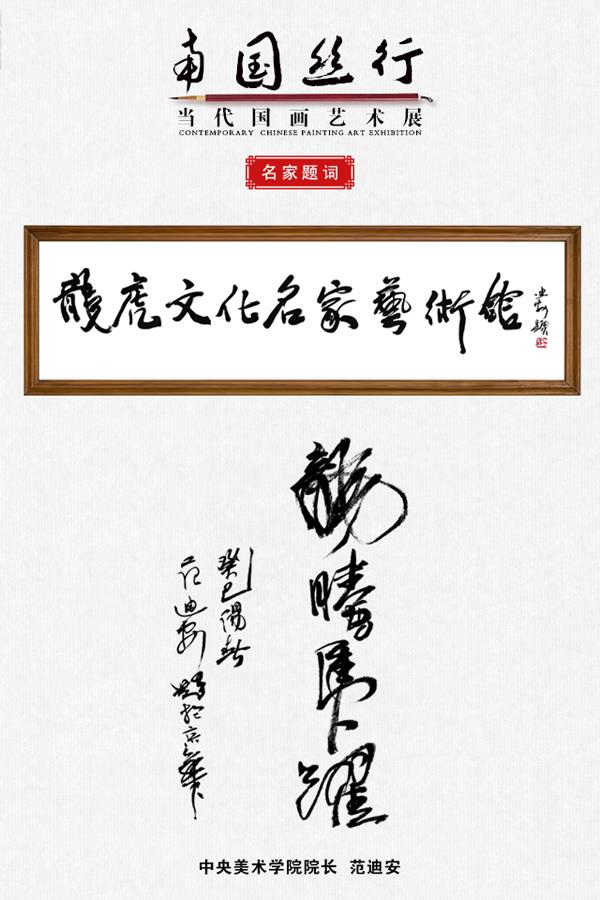 南国丝行
当代国画艺术展
CONTEMPORARY CHINESE PAINTING ART EXHIBITION
名家题词
龍虎文化名家藝術館
迪安題
龍騰虎躍
癸巳陽春
范迪安題於京華
中央美术学院院长 范迪安